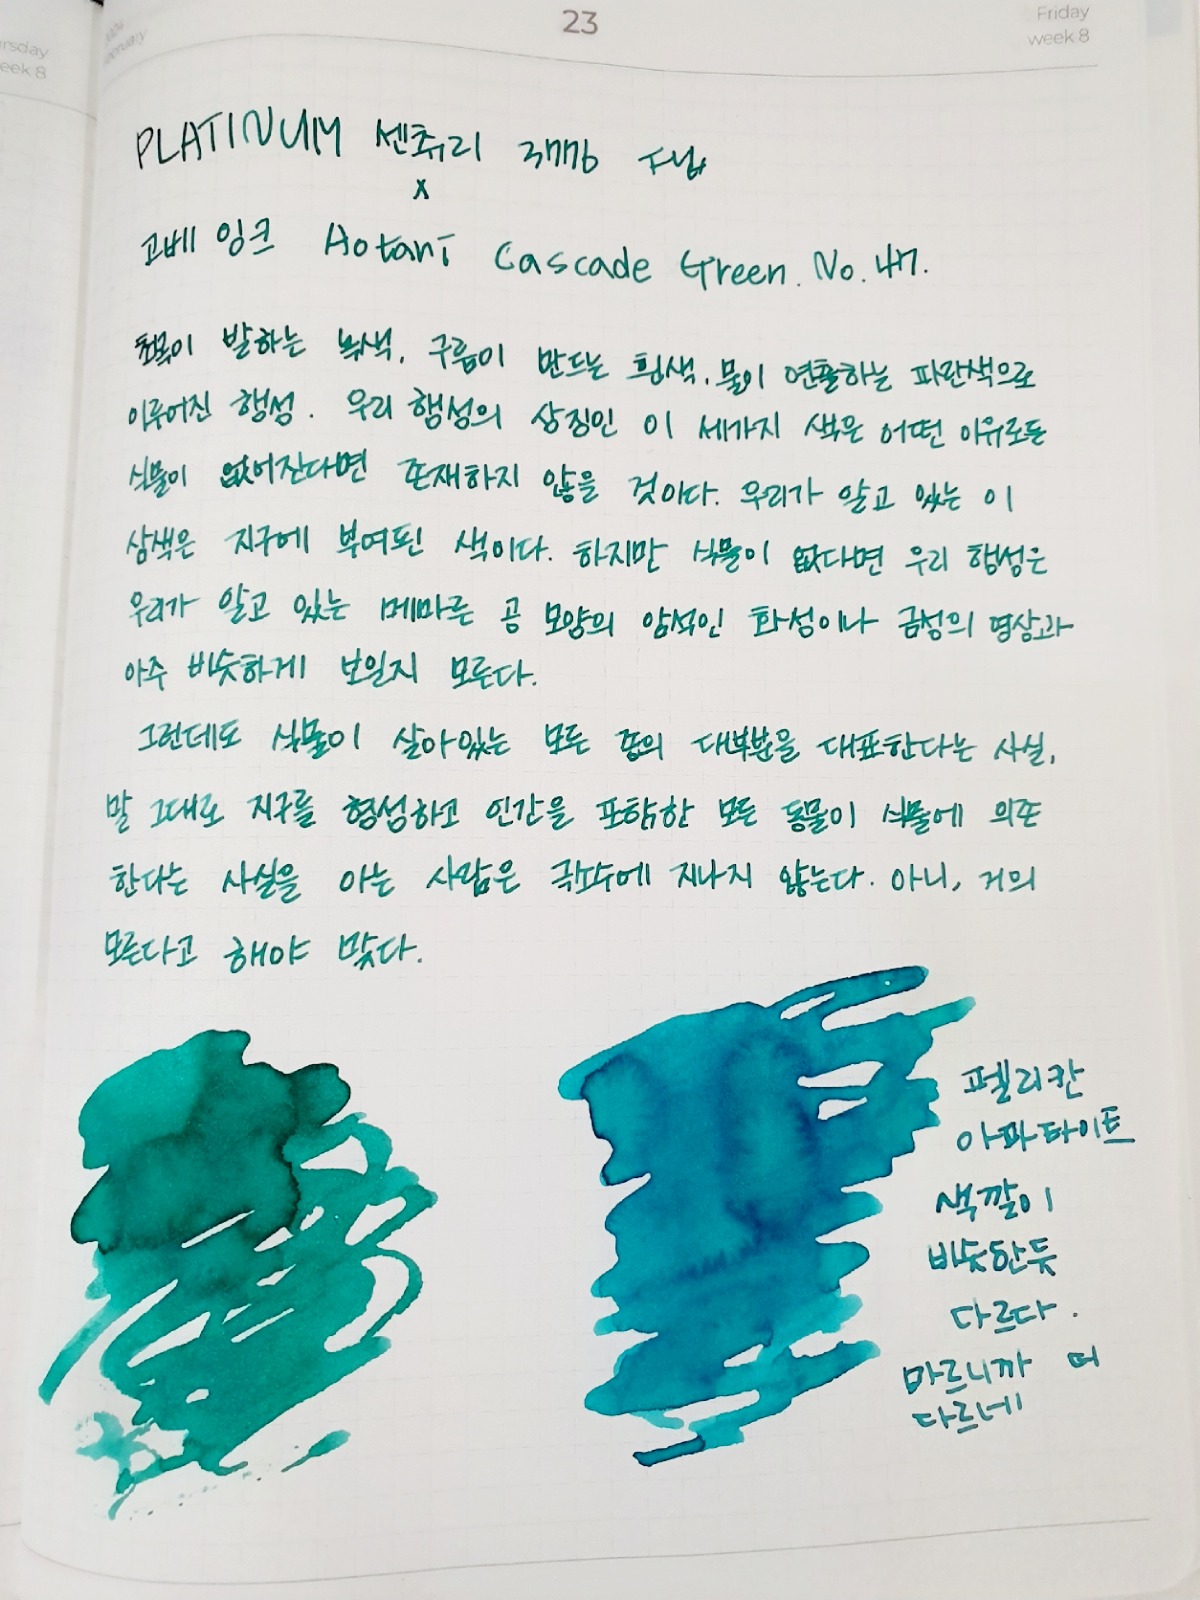 23
Friday
week 8
2024
February
rsday
eek 8
PLATINUM 센츄리 3776 F닙
x
고베 잉크 Aotani Cascade Green. No.47.
초목이 발하는 녹색, 구름이 만드는 흰색, 물이 연출하는 파란색으로
이루어진 행성. 우리 행성의 상징인 이 세가지 색은 어떤 이유로든
식물이 없어진다면 존재하지 않을 것이다. 우리가 알고 있는 이
삼색은 지구에 부여된 색이다. 하지만 식물이 없다면 우리 행성은
우리가 알고 있는 메마른 공 모양의 암석인 화성이나 금성의 영상과
아주 비슷하게 보일지 모른다.
그런데도 식물이 살아있는 모든 것의 대부분을 대표한다는 사실,
말 그대로 지구를 형성하고 인간을 포함한 모든 동물이 식물에 의존
한다는 사실을 아는 사람은 극소수에 지나지 않는다. 아니, 거의
모른다고 해야 맞다.
펠리칸
아파타이트
색깔이
비슷한듯
다르다.
마르니까 더
다르네